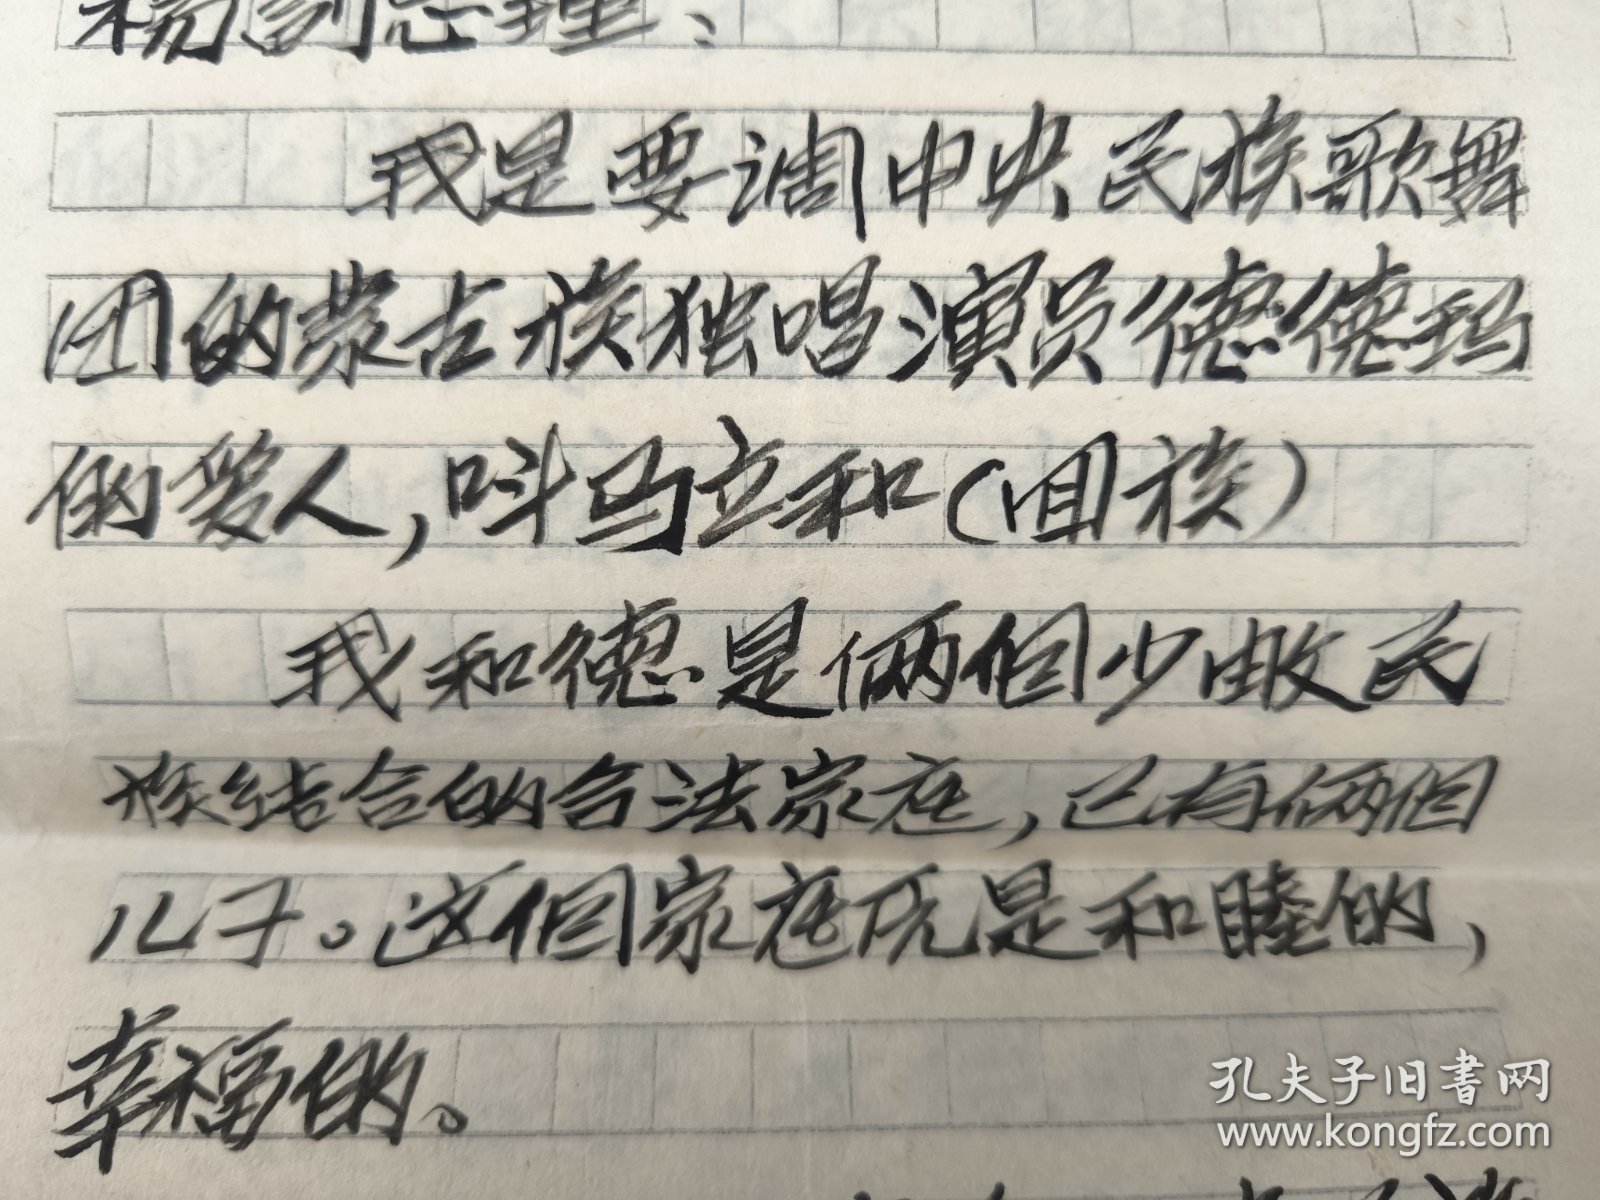 杨副总理：
我是要调中央民族歌舞
团的蒙古族独唱演员德德玛
的爱人，叫马立和（回族）
我和德是俩个少数民
族结合的合法家庭，已有俩个
儿子。这个家庭历是和睦的，
幸福的。
孔夫子旧书网
www.kongfz.com